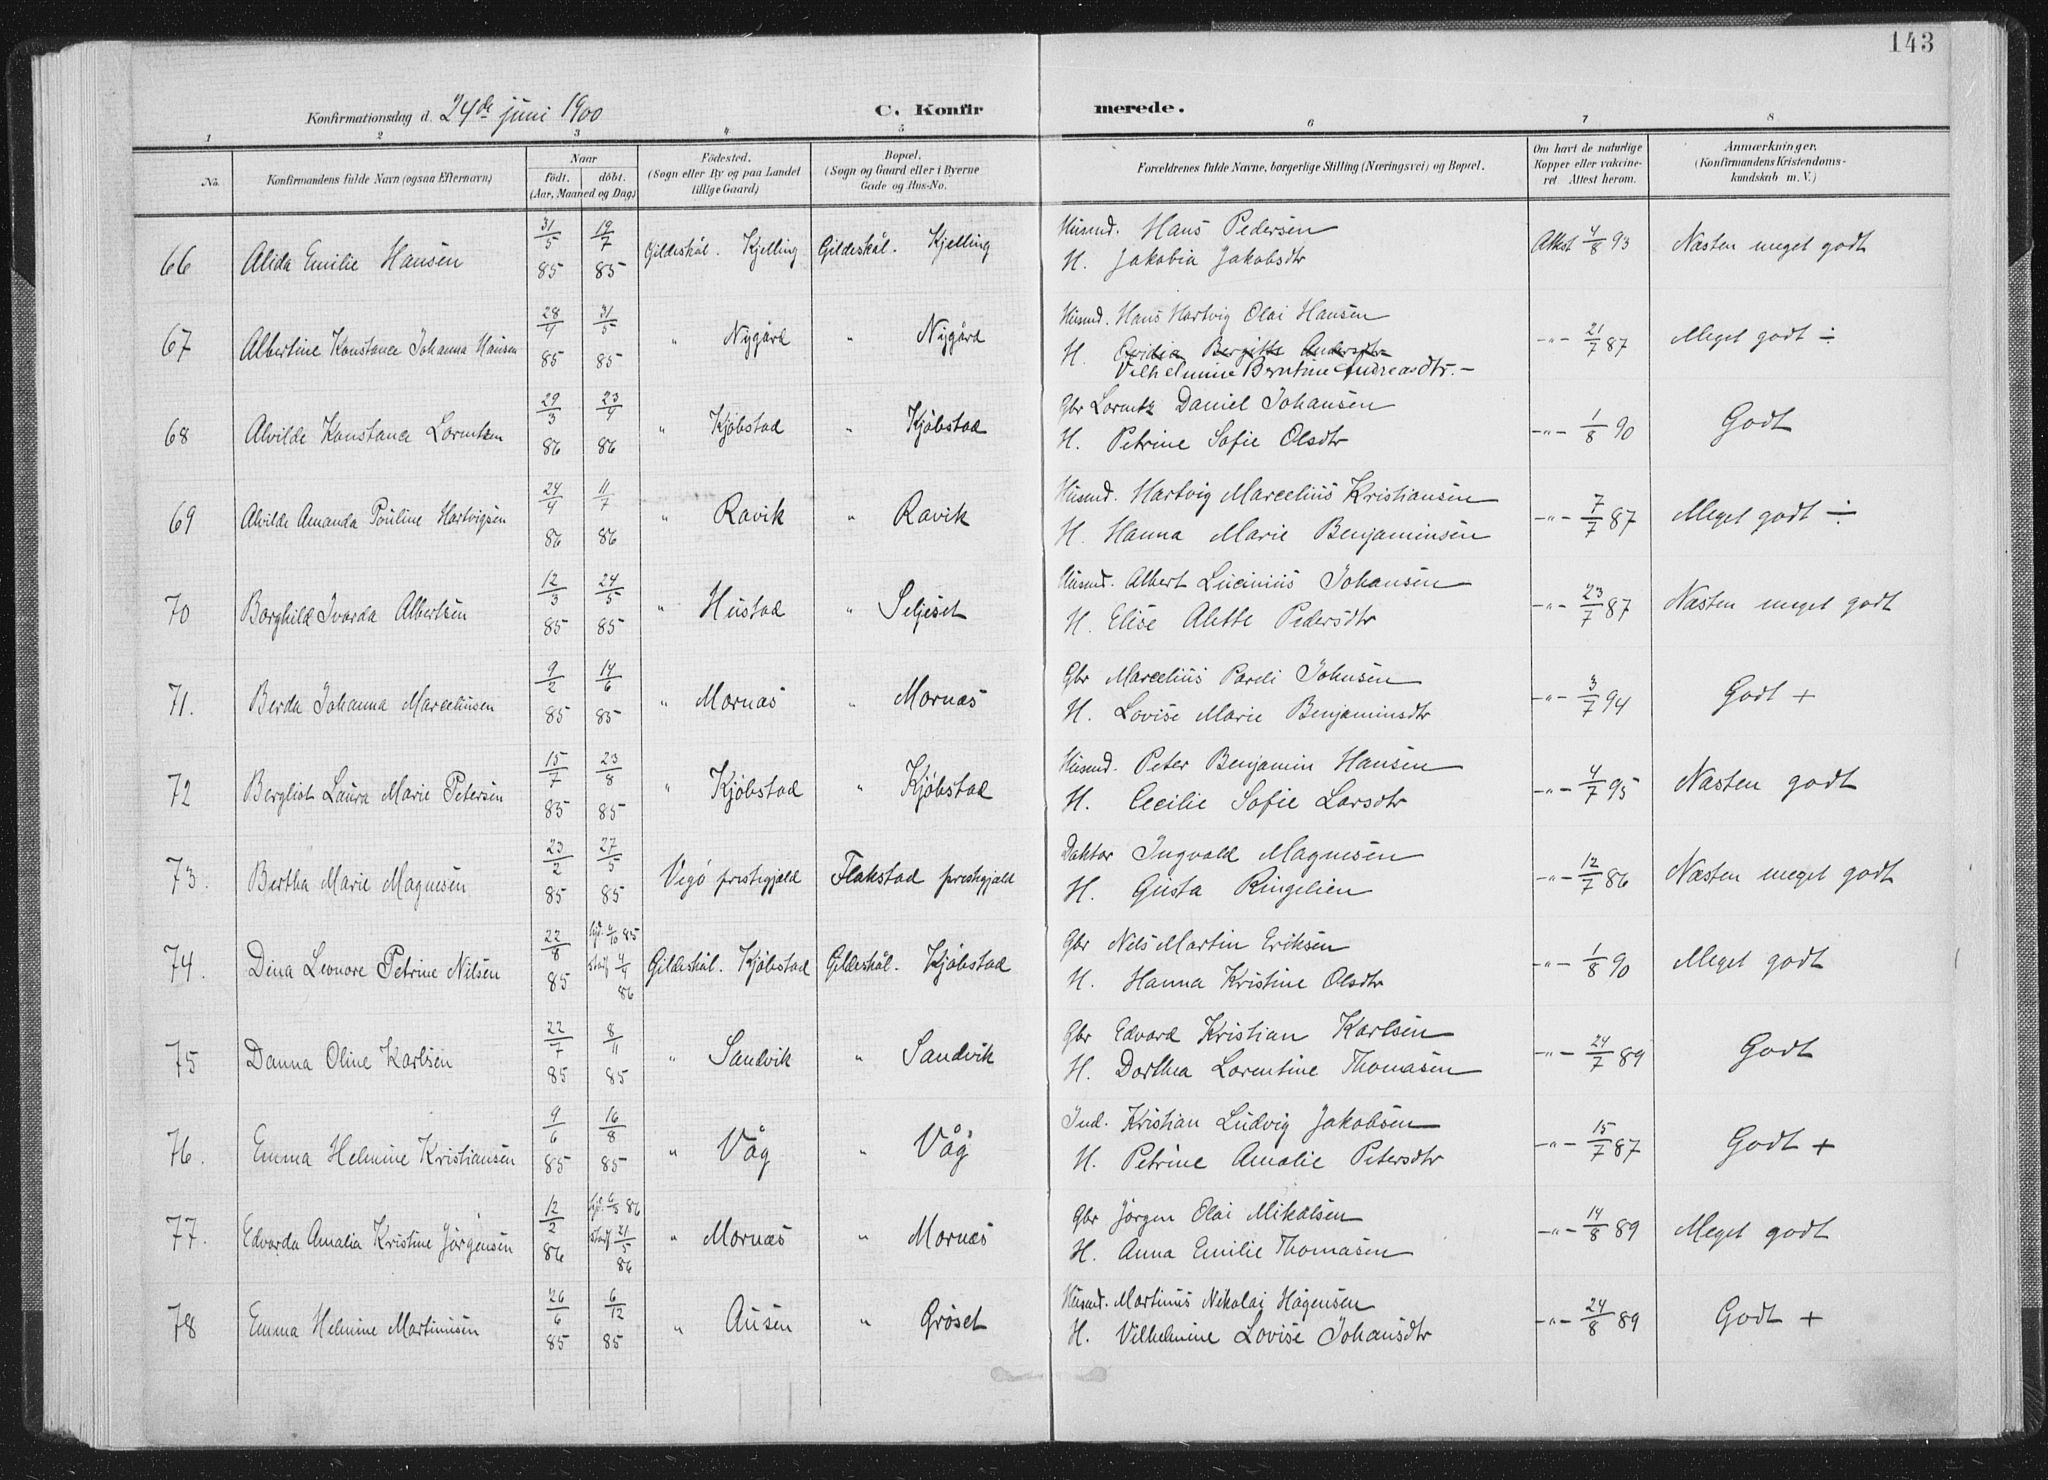 143
Konfirmationsdag d. 24de juni 1900
C. Konfirmerede.
1 2 3 4 5 6 7 8
No. Konfirmandens fulde Navn (ogsaa Efternavn) Naar født. døbt. (Aar, Maaned og Dag) Fødested. (Sogn eller By og paa Landet tillige Gaard) Bopæl. (Sogn og Gaard eller i Byerne Gade og Hus-No. Forældrenes fulde Navne, borgerlige Stilling (Næringsvei) og Bopæl. Om havt de naturlige Kopper eller vakcineret. Attest herom. Anmærkninger, (Konfirmandens Kristendomskundskab m. V.)
66 Alida Emilie Hansen 31/5 85 19/7 85 Gildeskål. Kjelling Gildeskål. Kjelling Husmd. Hans Pedersen Attest 4/8 93 Næsten meget godt
H. Jakobia Jakobsdtr
67 Albertine Konstance Johanna Hansen 28/4 85 31/5 85 " Nygård " Nygård Husmd. Hans Hartvig Olai Hansen -"- 21/7 87 Meget godt ÷
H. Bergitte Andersdtr
Vilhelmine Berntine Andreasdtr. -
68 Alvilde Konstance Lorentzen 29/3 86 23/4 86 " Kjøbstad " Kjøbstad Gbr Lorentz Daniel Johansen -"- 1/8 90 Godt
H. Petrine Sofie Olsdtr
69 Alvilde Amanda Pouline Hartvigsen 24/4 86 11/7 86 " Ravik " Ravik Husmd. Hartvig Marcelius Kristiansen -"- 7/7 87 Meget godt ÷
H. Hanna Marie Benjaminsen
70 Borghild Ivarda Albertsen 12/3 85 24/5 85 " Hustad " Seljeset Husmd. Albert Lucinius Johansen -"- 23/7 87 Næsten meget godt
H. Elise Alette Pedersdtr
71. Berda Johanna Marceliusen 9/2 85 14/6 85 " Mornæs " Mornæs Gbr Marcelius Pareli Johnsen -"- 3/7 94 Godt +
H. Lovise Marie Benjaminsdtr
72 Bergliot Laura Marie Petersen 15/7 85 23/8 85 " Kjøbstad " Kjøbstad Husmd. Peter Benjamin Hansen -"- 4/7 95 Næsten godt
H. Cecilie Sofie Larsdtr
73. Bertha Marie Magnesen 23/2 85 27/5 85 Vegø prestegjæld Flakstad prestegjæld Doktor Ingvald Magnesen -"- 12/7 86 Næsten meget godt
H. Gusta Ringelien
74. Dina Leonore Petrine Nilsen 22/8 85 hjd. 6/10 85 stadf 4/4 86 Gildeskål. Kjøbstad Gildeskål. Kjøbstad Gbr Nils Martin Eriksen -"- 1/8 90 Meget godt
H. Hanna Kristine Olsdtr
75 Danna Oline Karlsen 22/7 85 8/11 85 " Sandvik " Sandvik Gbr Edvard Kristian Karlsen -"- 24/7 89 Godt
H. Dorthea Lorentine Thomasen
76. Emma Helmine Kristiansen 9/6 85 16/8 85 " Våg " Våg Ind. Kristian Ludvig Jakobsen -"- 15/7 87 Godt +
H. Petrine Amalie Petersdtr
77. Edvarda Amalia Kristine Jørgensen 12/2 86 hjd. 6/3 86 stadf 21/5 86 " Mornæs " Mornæs Gbr Jørgen Olai Mikalsen -"- 14/8 89 Meget godt
H. Anna Emilie Thomasen
78 Emma Helmine Martinusen 26/6 85 6/12 85 " Ausen " Grøset Husmd. Martinus Nikolai Hågensen -"- 24/8 89 Godt +
H. Vilhelmine Lovise Johansdtr